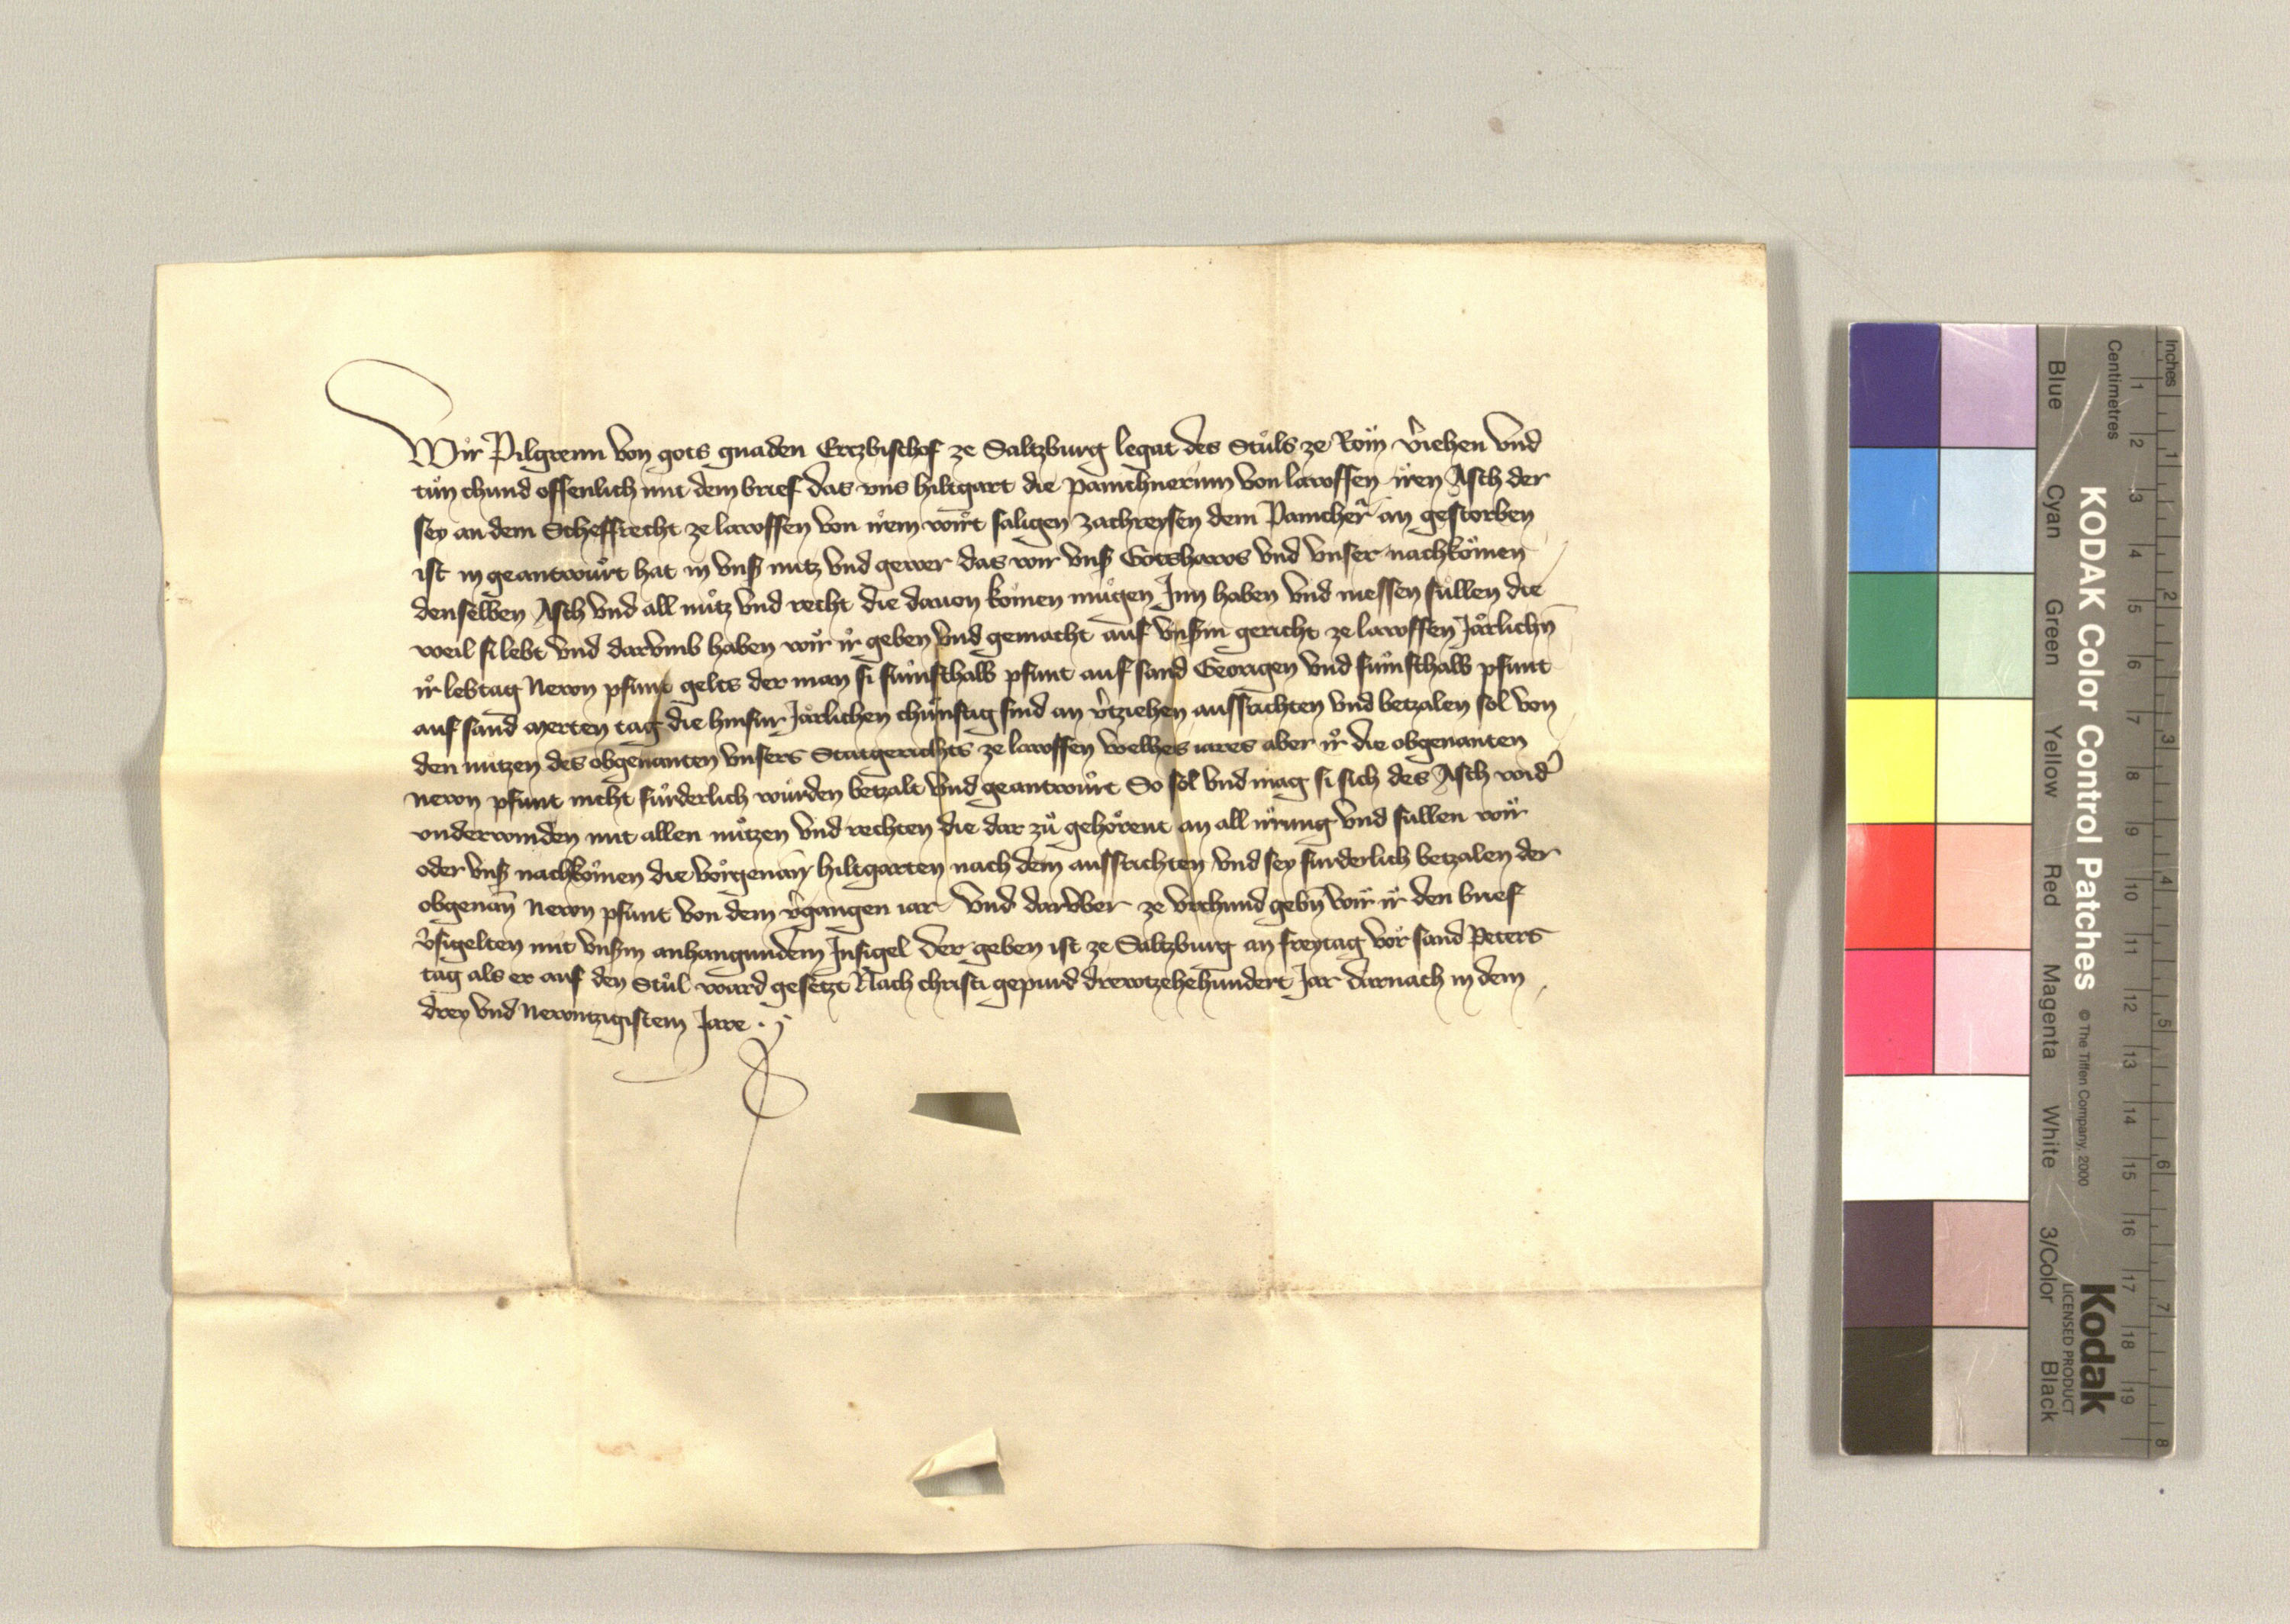 Wir Pilgreim von gots gnaden Ertzbischof ze Saltzburg legat des Stůls ze Rom v̓iehen vnd
tůn chund offenlich mit dem brief das vns hiltgart die pamchnerinn von lawffen iren Asch der
sey an dem Scheffrecht ze lawffen von irem wirt saligen zachreysen dem Pamcher an gestorben
ist in geantwurt hat in vnß nutz vnd gewer das wir vnß Gotshaws vnd vnser nachkömen
denselben Asch vnd all nůtz vnd recht die dauon komen mugen Inn haben vnd niessen sullen die
weil si lebt vnd darvmb haben wir ir geben vnd gemacht auf vnßm gericht ze lawffen Järlichn̄
ir lebtag Newn pfunt gelts der man si fumfthalb pfunt auf sand Georigen vnd fumfthalb pfunt
auf sand Merten tag die hinfur Järlichen chünftig sind an v̓tziehen ausrichten vnd betzalen sol von
den nützen des obgenanten vnsers Statgerichts ze lawffen welhes iares aber ir die obgenanten
newn pfunt nicht fürderlich würden betzalt vnd geantwurt So sol vnd mag si sich des Asch wid̓
vnderwinden mit allen nützen vnd rechten die dar zů gehörent an all irrung vnd sullen wir
oder vnß nachkömen die vorgenan̄ hiltgarten nach dem ausrichten vnd sey furderlich betzalen der
obgenan̄ Newn pfunt von dem v̓gangen iar vnd darvber ze vrchund gebn̄ wir ir den brief
v̓sigelten mit vnßm anhangundem Insigel Der geben ist ze Saltzburg an freytag vor sand Peters
tag als er auf den Stůl ward gesetzt Nach christi gepurd drewtzehehundert Jar darnach in dem
drey vnd Newntzigistem Jare
Inches
Centimetres
KODAK Color Control Patches
© The Tiffen Company, 2000
Kodak
LICENSED PRODUCT
Blue Cyan Green Yellow Red Magenta White 3/Color Black
1 2 3 4 5 6 7 8 9 10 11 12 13 14 15 16 17 18 19
1 2 3 4 5 6 7 8